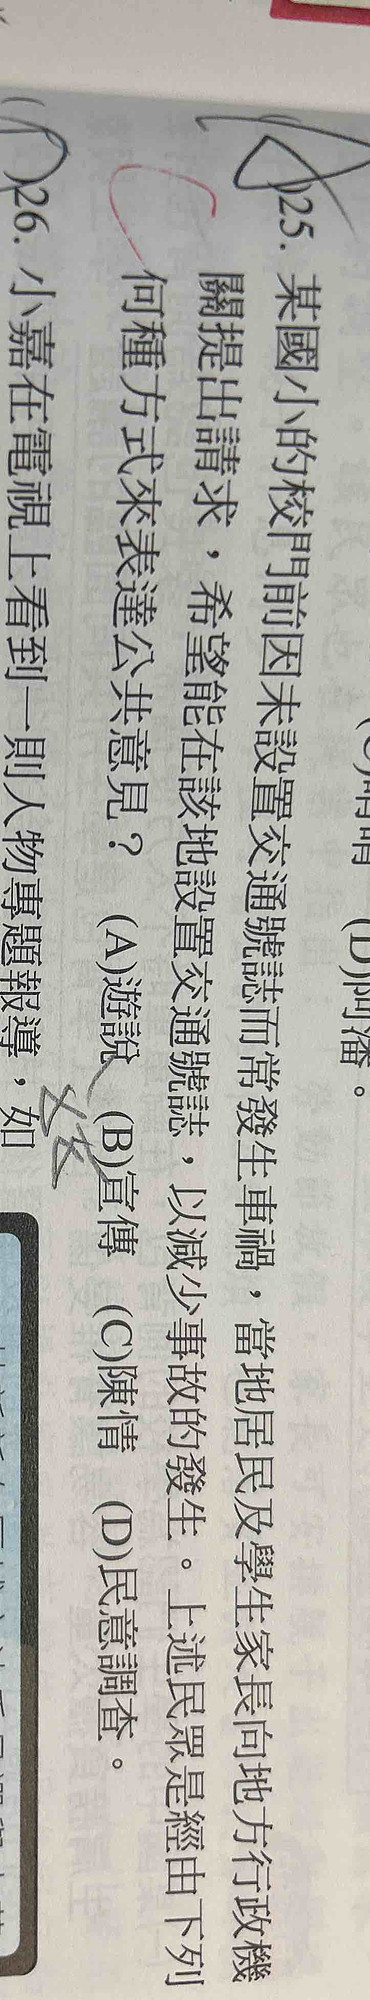 (D)阿潘。
25. 某國小的校門前因未設置交通號誌而常發生車禍，當地居民及學生家長向地方行政機
關提出請求，希望能在該地設置交通號誌，以減少事故的發生。上述民眾是經由下列
何種方式來表達公共意見？ (A)遊說 (B)宣傳 (C)陳情 (D)民意調查。
26. 小嘉在電視上看到一則人物專題報導，如